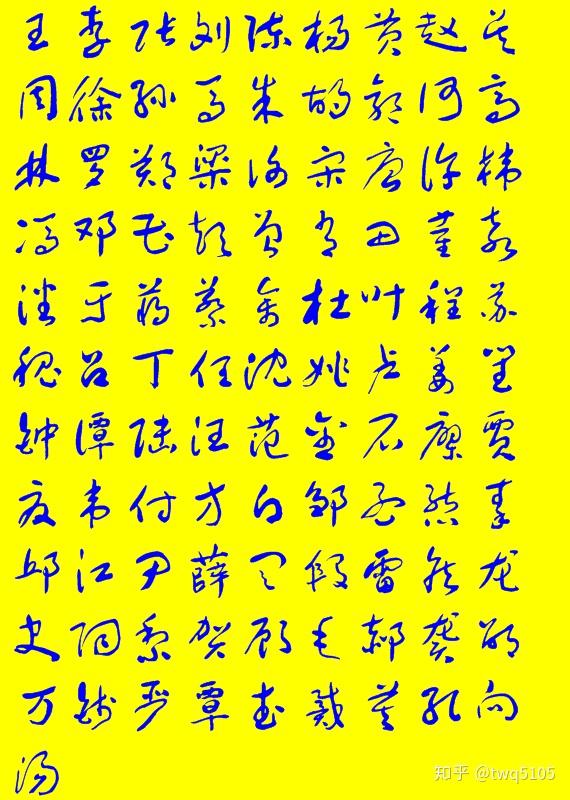 王李张刘陈杨黄赵吴
周徐孙马朱胡郭何高
林罗郑梁谢宋唐许韩
冯邓曹彭曾肖田董袁
潘于蒋蔡余杜叶程苏
魏吕丁任沈姚卢姜崔
钟谭陆汪范金石廖贾
夏韦付方白邹孟熊秦
邱江尹薛闫段雷侯龙
史陶黎贺顾毛郝龚邵
万钱严覃武戴莫孔向
汤
知乎 @twq5105